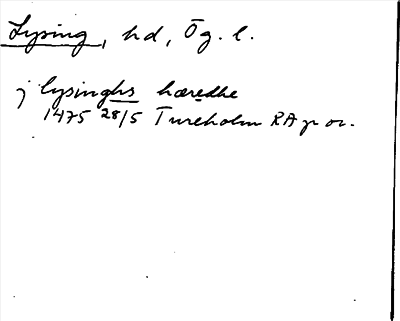 Lysing, hd, Ög. l.
j lysinghs hæredhe
1475 28/5 Tureholm RA p or.